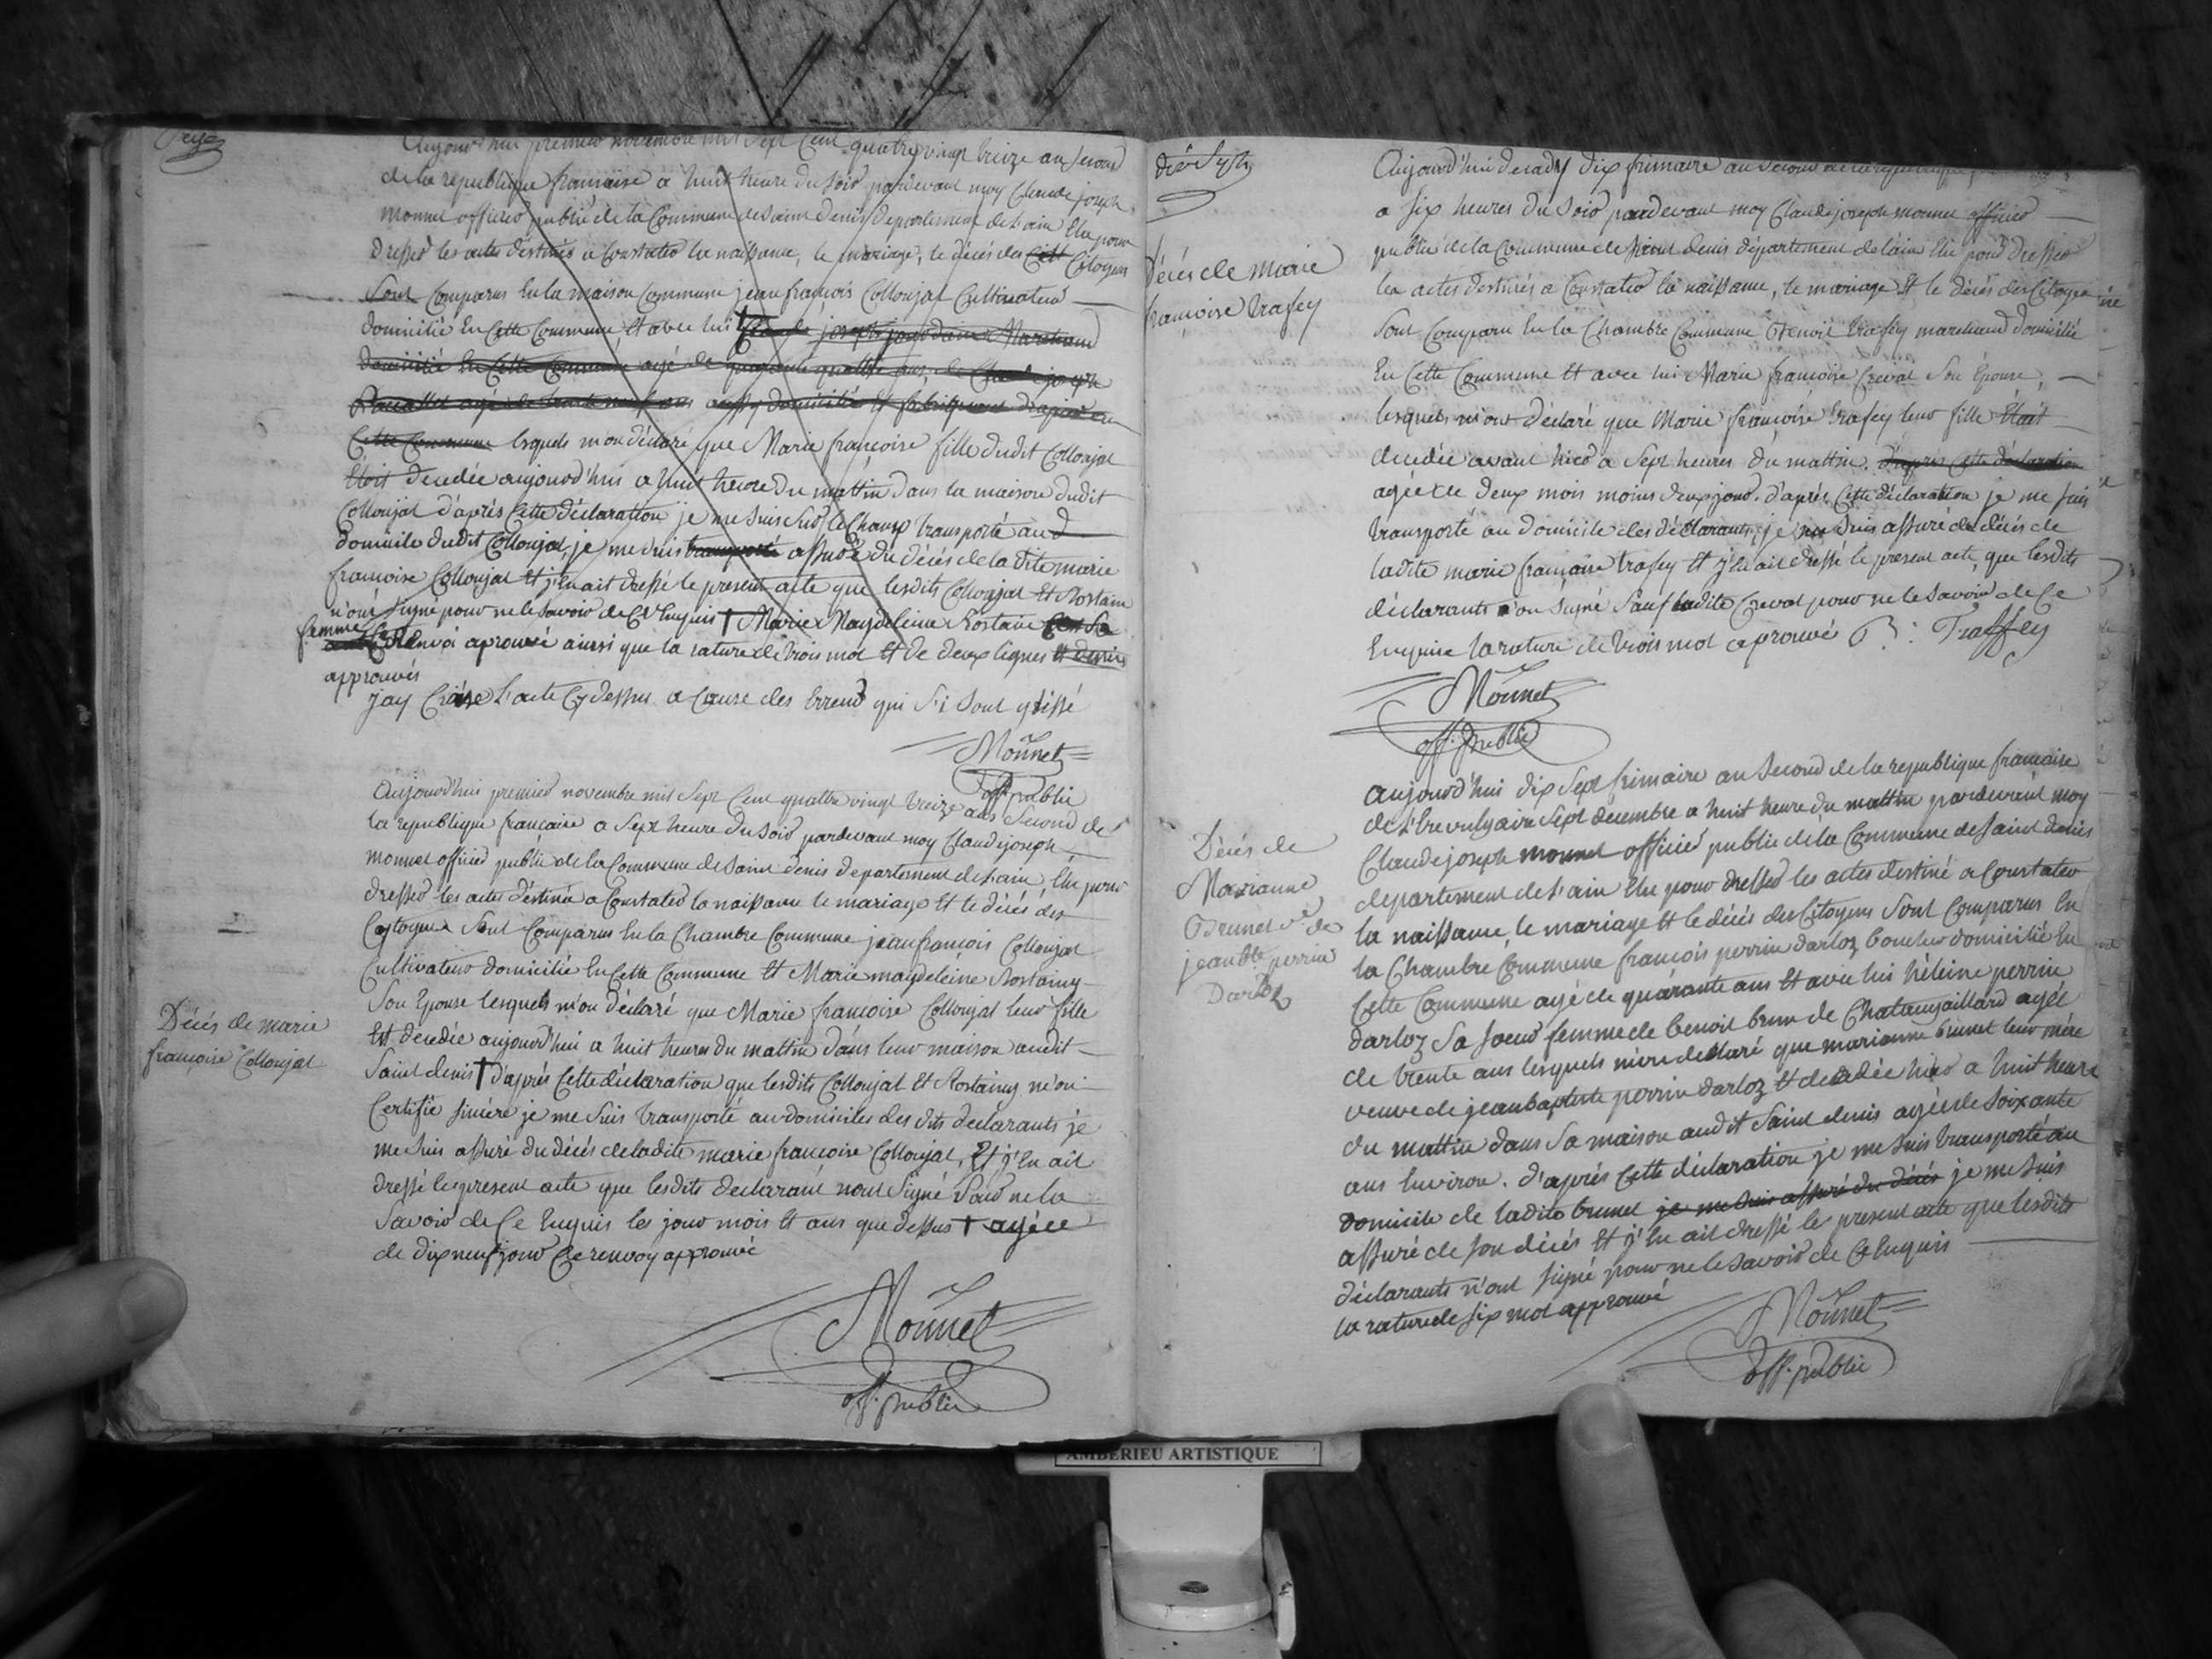 Seize
Aujourd'hui premier novembre mil sept cent quatre vingt treize an second
de la republique francaise a huit heure du soir pardevant moy Claude joseph
monnet officier public de la Commune de saint denis departement de l'ain Elu pour
dresser les actes destinés a Constater la naissance, le mariage, le décés des Citt Citoyens
Sont Comparus En la maison Commune jean françois Collonjat Cultivateur
domicilié En Cette Commune, Et avec lui † Claude joseph jourdain Marchand
domicilié En Cette Commune agé de quarante quattre ans, de Claude joseph
agé de trente neuf ans aussy domicilié Et fabriquant drapier en
Cette Commune lesquels m'on déclaré que Marie françoise fille dudit Collonjat
Etoit decedée aujourd'hui a huit heure du mattin dans la maison dudit
Collonjat d'après Cette déclaration je me suis sur le Champ transporté au d
domicile dudit Collonjat, je me suis transporté assuré du décés de la dite marie
françoise Collonjat Et j'en ait dressé le present acte que lesdits Collonjat Et Rostaine
n'ont signé pour ne le savoir de Ce Enquis † Marie Magdeleine Rostaine Est Sa
femme Ce Renvoi aprouvé ainsi que la rature de trois mot Et de deux lignes Et demie
approuvés
jay Croisé L'acte Cy dessus a Cause des Erreur qui s'i sont glissé
Monnet
off. public
Aujourd'hui premier novembre mil sept Cent quattre vingt treize ans Second de
la republique francaise a Sept heure du soir pardevant moy Claude joseph
monnet officier public de la Commune de saint denis departement de l'ain, Elu pour
dresser les actes déstiné a Constater la naissance le mariage Et le décés des
Citoyens Sont Comparus En la Chambre Commune jean françois Collonjat
Cultivateur domicilié En Cette Commune Et Marie magdeleine Rostaing
Son Epouse lesquels m'on déclaré que Marie françoise Collonjat leur fille
Est decedée aujourd'hui a huit heures du mattin dans leur maison audit
Saint denis † d'après Cette déclaration que lesdits Collonjat Et Rostaing m'on
Certifié sincére je me suis transporté au domiciles des dits declarants je
me suis assuré du décés de ladite marie francoise Collonjat, Et j'en ait
dressé le present acte que lesdits declarant n'ont Signé Pour ne la
Savoir de Ce Enquis les jour mois Et ans que dessus † agéee
de dix neuf jour Ce renvoy approuvé
Décés de marie
francoise Collonjat
Monnet
off. public
dix Sept
Décés de Marie
françoise trafey
Aujourd'hui decady dix frimaire an second de la republique
a six heures du soir pardevant moy Claude joseph monnet officier
public de la Commune de saint denis département de l'ain Elu pour dresser
les actes destinés a Constater la naissance, le mariage Et le décés des Citoyens
Sont Comparu En la Chambre Commune Benoit trafey marchand domicilié
En Cette Commune Et avec lui Marie françoise Creval Son Epouse,
lesquels m'ont déclaré que Marie françoise trafey leur fille Etait
decedée avant hier a Sept heures du mattin. d'après Cette déclaration
agée de deux mois moins deux jour. d'après Cette déclaration je me suis
transporté au domicile des déclarants, je me suis assuré du décés de
ladite marie françoise trafey Et j'en ait dressé le present acte, que lesdits
déclarants n'on signé Sauf ladite Creval pour ne le savoir de Ce
Enquise la rature de trois mot aprouvé B: Traffey
Monnet
off. public
Décés de
Marianne
Brunet ve de
jean Bte perrin
Darloz
aujourd'hui dix Sept frimaire an second de la republique francaise
de l'Ere vulgaire Sept decembre a huit heure du mattin pardevant moy
Claude joseph monnet officier public de la Commune de saint denis
departement de l'ain Elu pour dresser les actes destiné a Constater
la naissance, le mariage Et le décés des Citoyens Sont Comparus En
la Chambre Commune françois perrin darloz boucher domicilié En
Cette Commune agé de quarante ans Et avec lui héleine perrin
darloz Sa soeur femme de benoit brun de Chateaugaillard agée
de trente ans lesquels m'ont declaré que marianne brunet leur mére
veuve de jean baptiste perrin darloz Et decedée hier a huit heure
du mattin dans Sa maison audit Saint denis agée de soixante
ans Environ. d'après Cette déclaration je me suis transporté au
domicile de ladite brunet je me suis assuré du décés je me suis
assuré de son décés Et j'en ait dressé le present acte que lesdits
déclarants n'ont signé pour ne le savoir de Ce Enquis
la rature de six mot approuvé
Monnet
off. public
AMBERIEU ARTISTIQUE